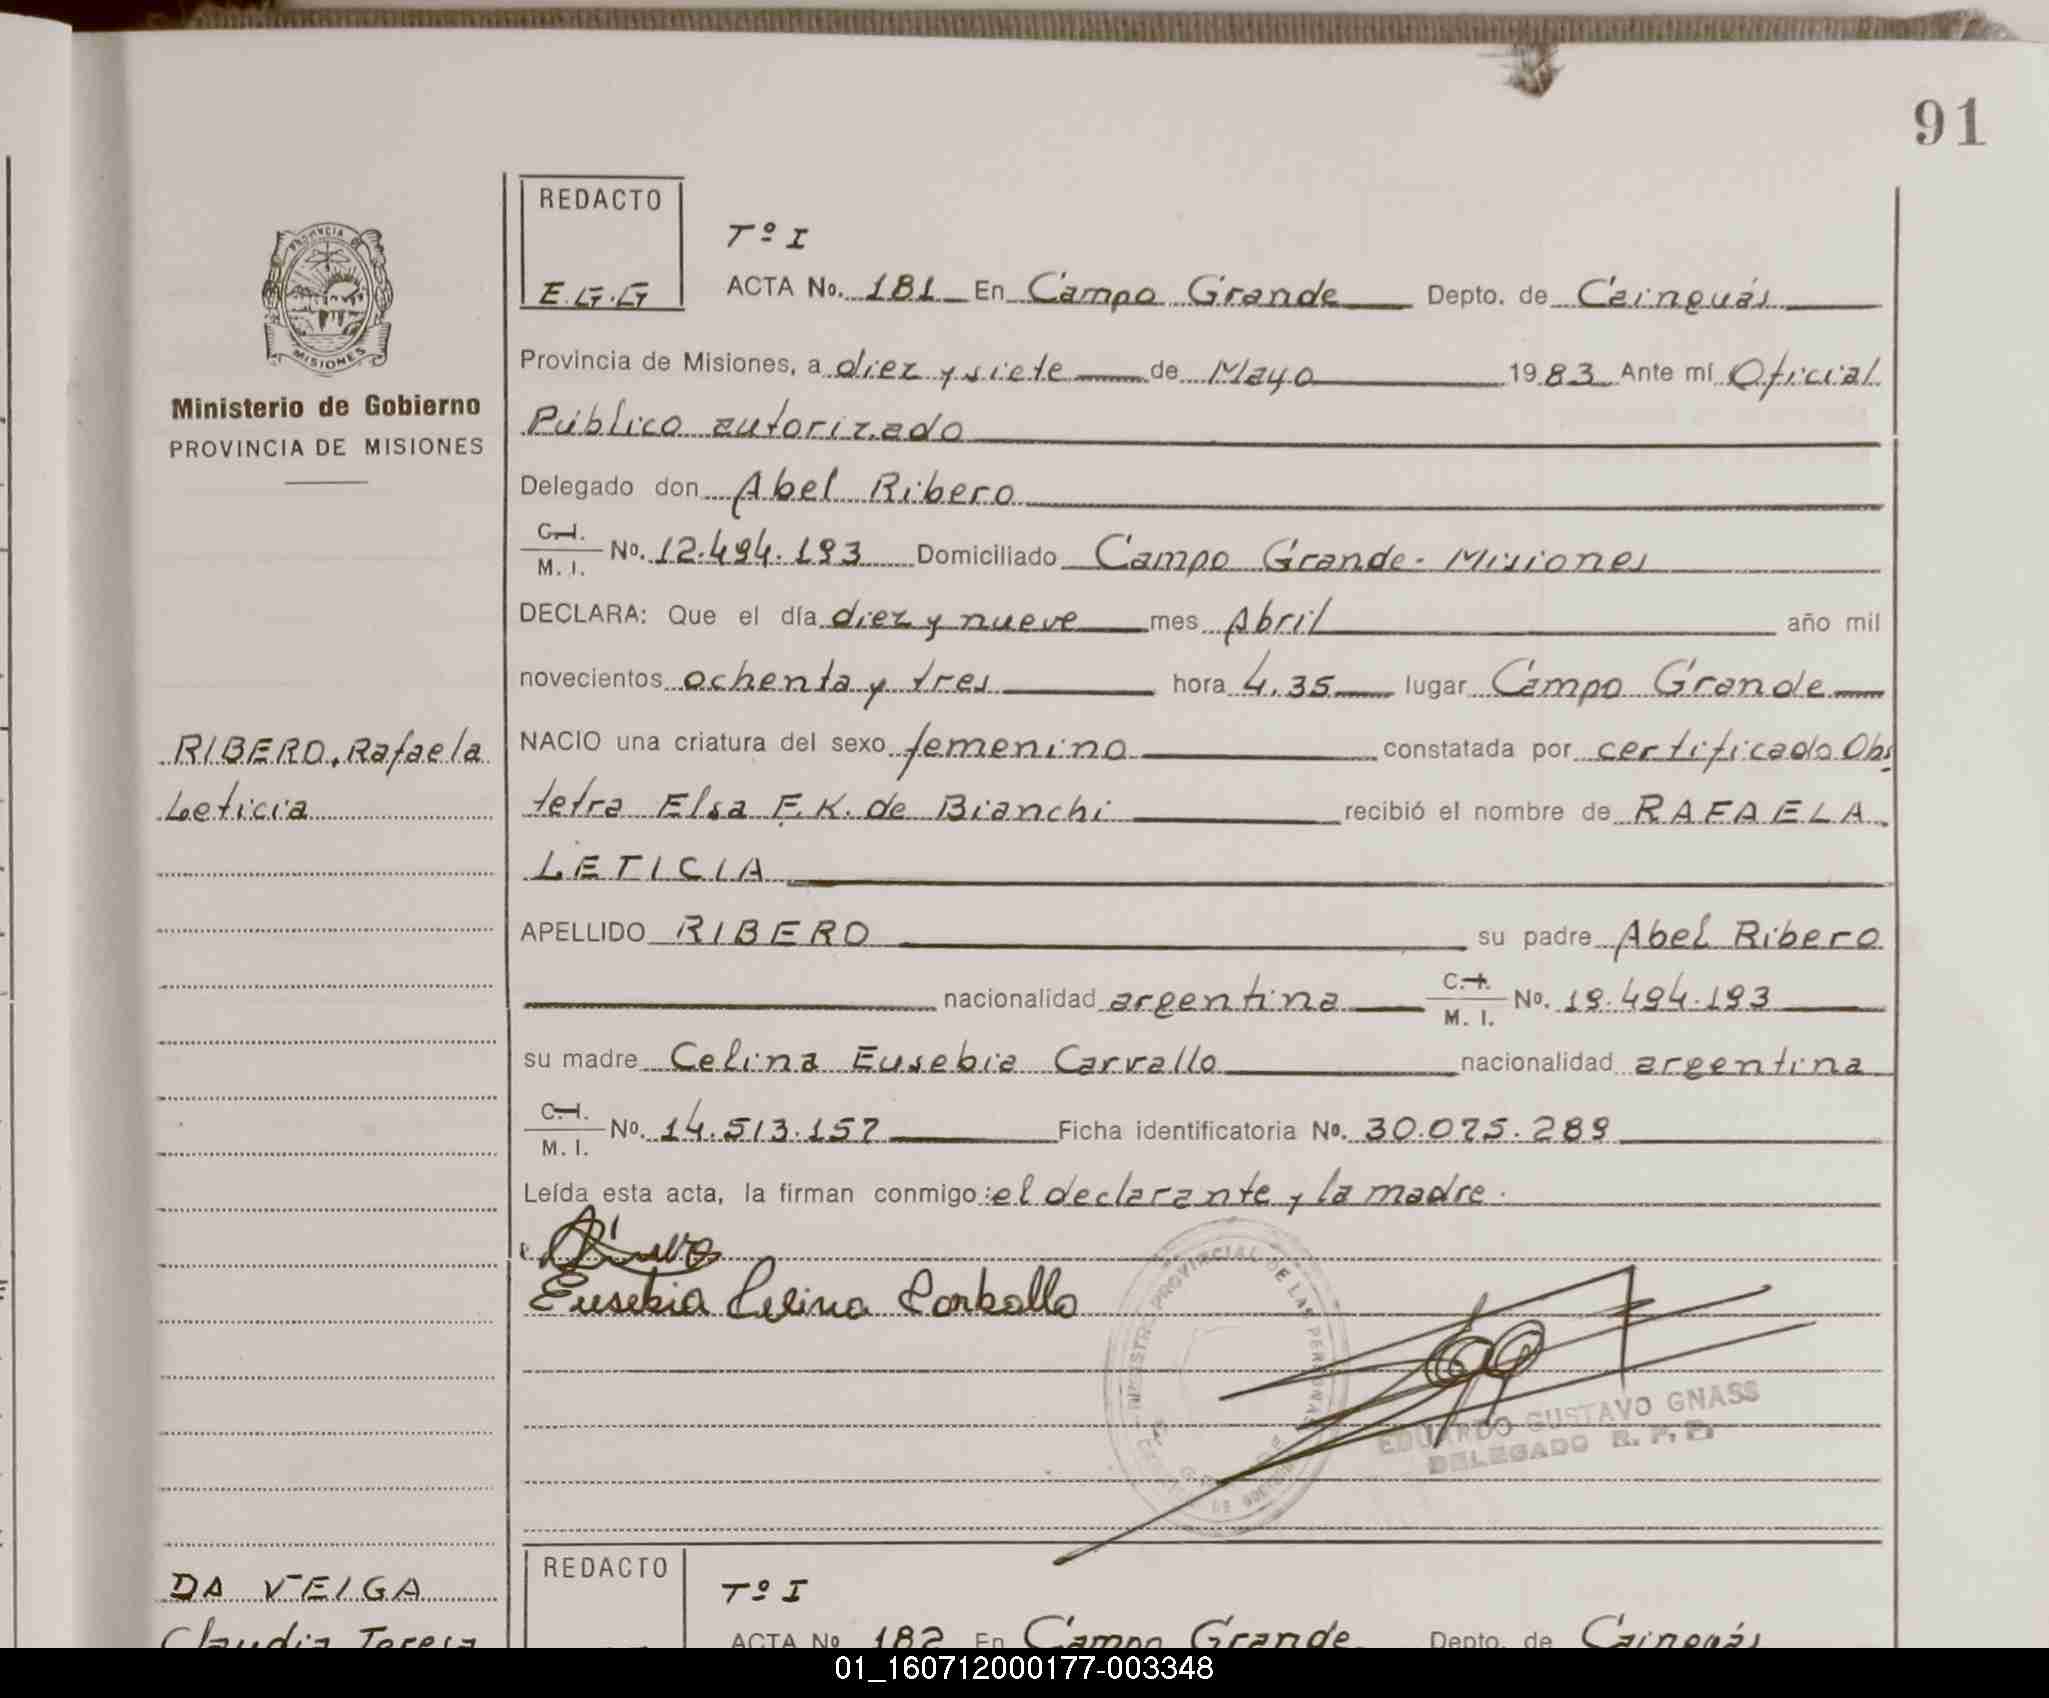 91
REDACTO
Tº I
E.G.G
ACTA No. 181 En Campo Grande Depto. de Cainguás
PROVINCIA DE
MISIONES
Provincia de Misiones, a diez y siete de Mayo 1983 Ante mí Oficial
Ministerio de Gobierno
PROVINCIA DE MISIONES
Público autorizado
Delegado don Abel Ribero
C.I.
M. I. No. 12.494.193 Domiciliado Campo Grande - Misiones
DECLARA: Que el día diez y nueve mes Abril año mil
novecientos ochenta y tres hora 4.35 lugar Campo Grande
RIBERO, Rafaela
Leticia
NACIO una criatura del sexo femenino constatada por certificado Obs
tetra Elsa F.K. de Bianchi recibió el nombre de RAFAELA
LETICIA
APELLIDO RIBERO su padre Abel Ribero
nacionalidad argentina C.I.
M. I. No. 19.494.193
su madre Celina Eusebia Carvallo nacionalidad argentina
C.I.
M. I. No. 14.513.157 Ficha identificatoria No. 30.075.289
Leída esta acta, la firman conmigo: el declarante y la madre.
Eusebia Celina Carballo
REGISTRO PROVINCIAL DE LAS PERSONAS
EDUARDO GUSTAVO GNASS
DELEGADO R. P. P.
DA VEIGA
Claudia Teresa
REDACTO
Tº I
ACTA No 182 En Campo Grande Depto. de Cainguás
01_160712000177-003348